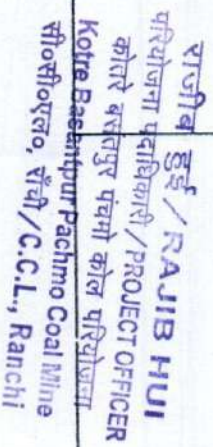 राजीब हुई / RAJIB HUI
परियोजना पदाधिकारी / PROJECT OFFICER
कोतरे बसंतपुर पचमो कोल परियोजना
Kotre Basantpur Pachmo Coal Mine
सी०सी०एल०, राँची / C.C.L., Ranchi